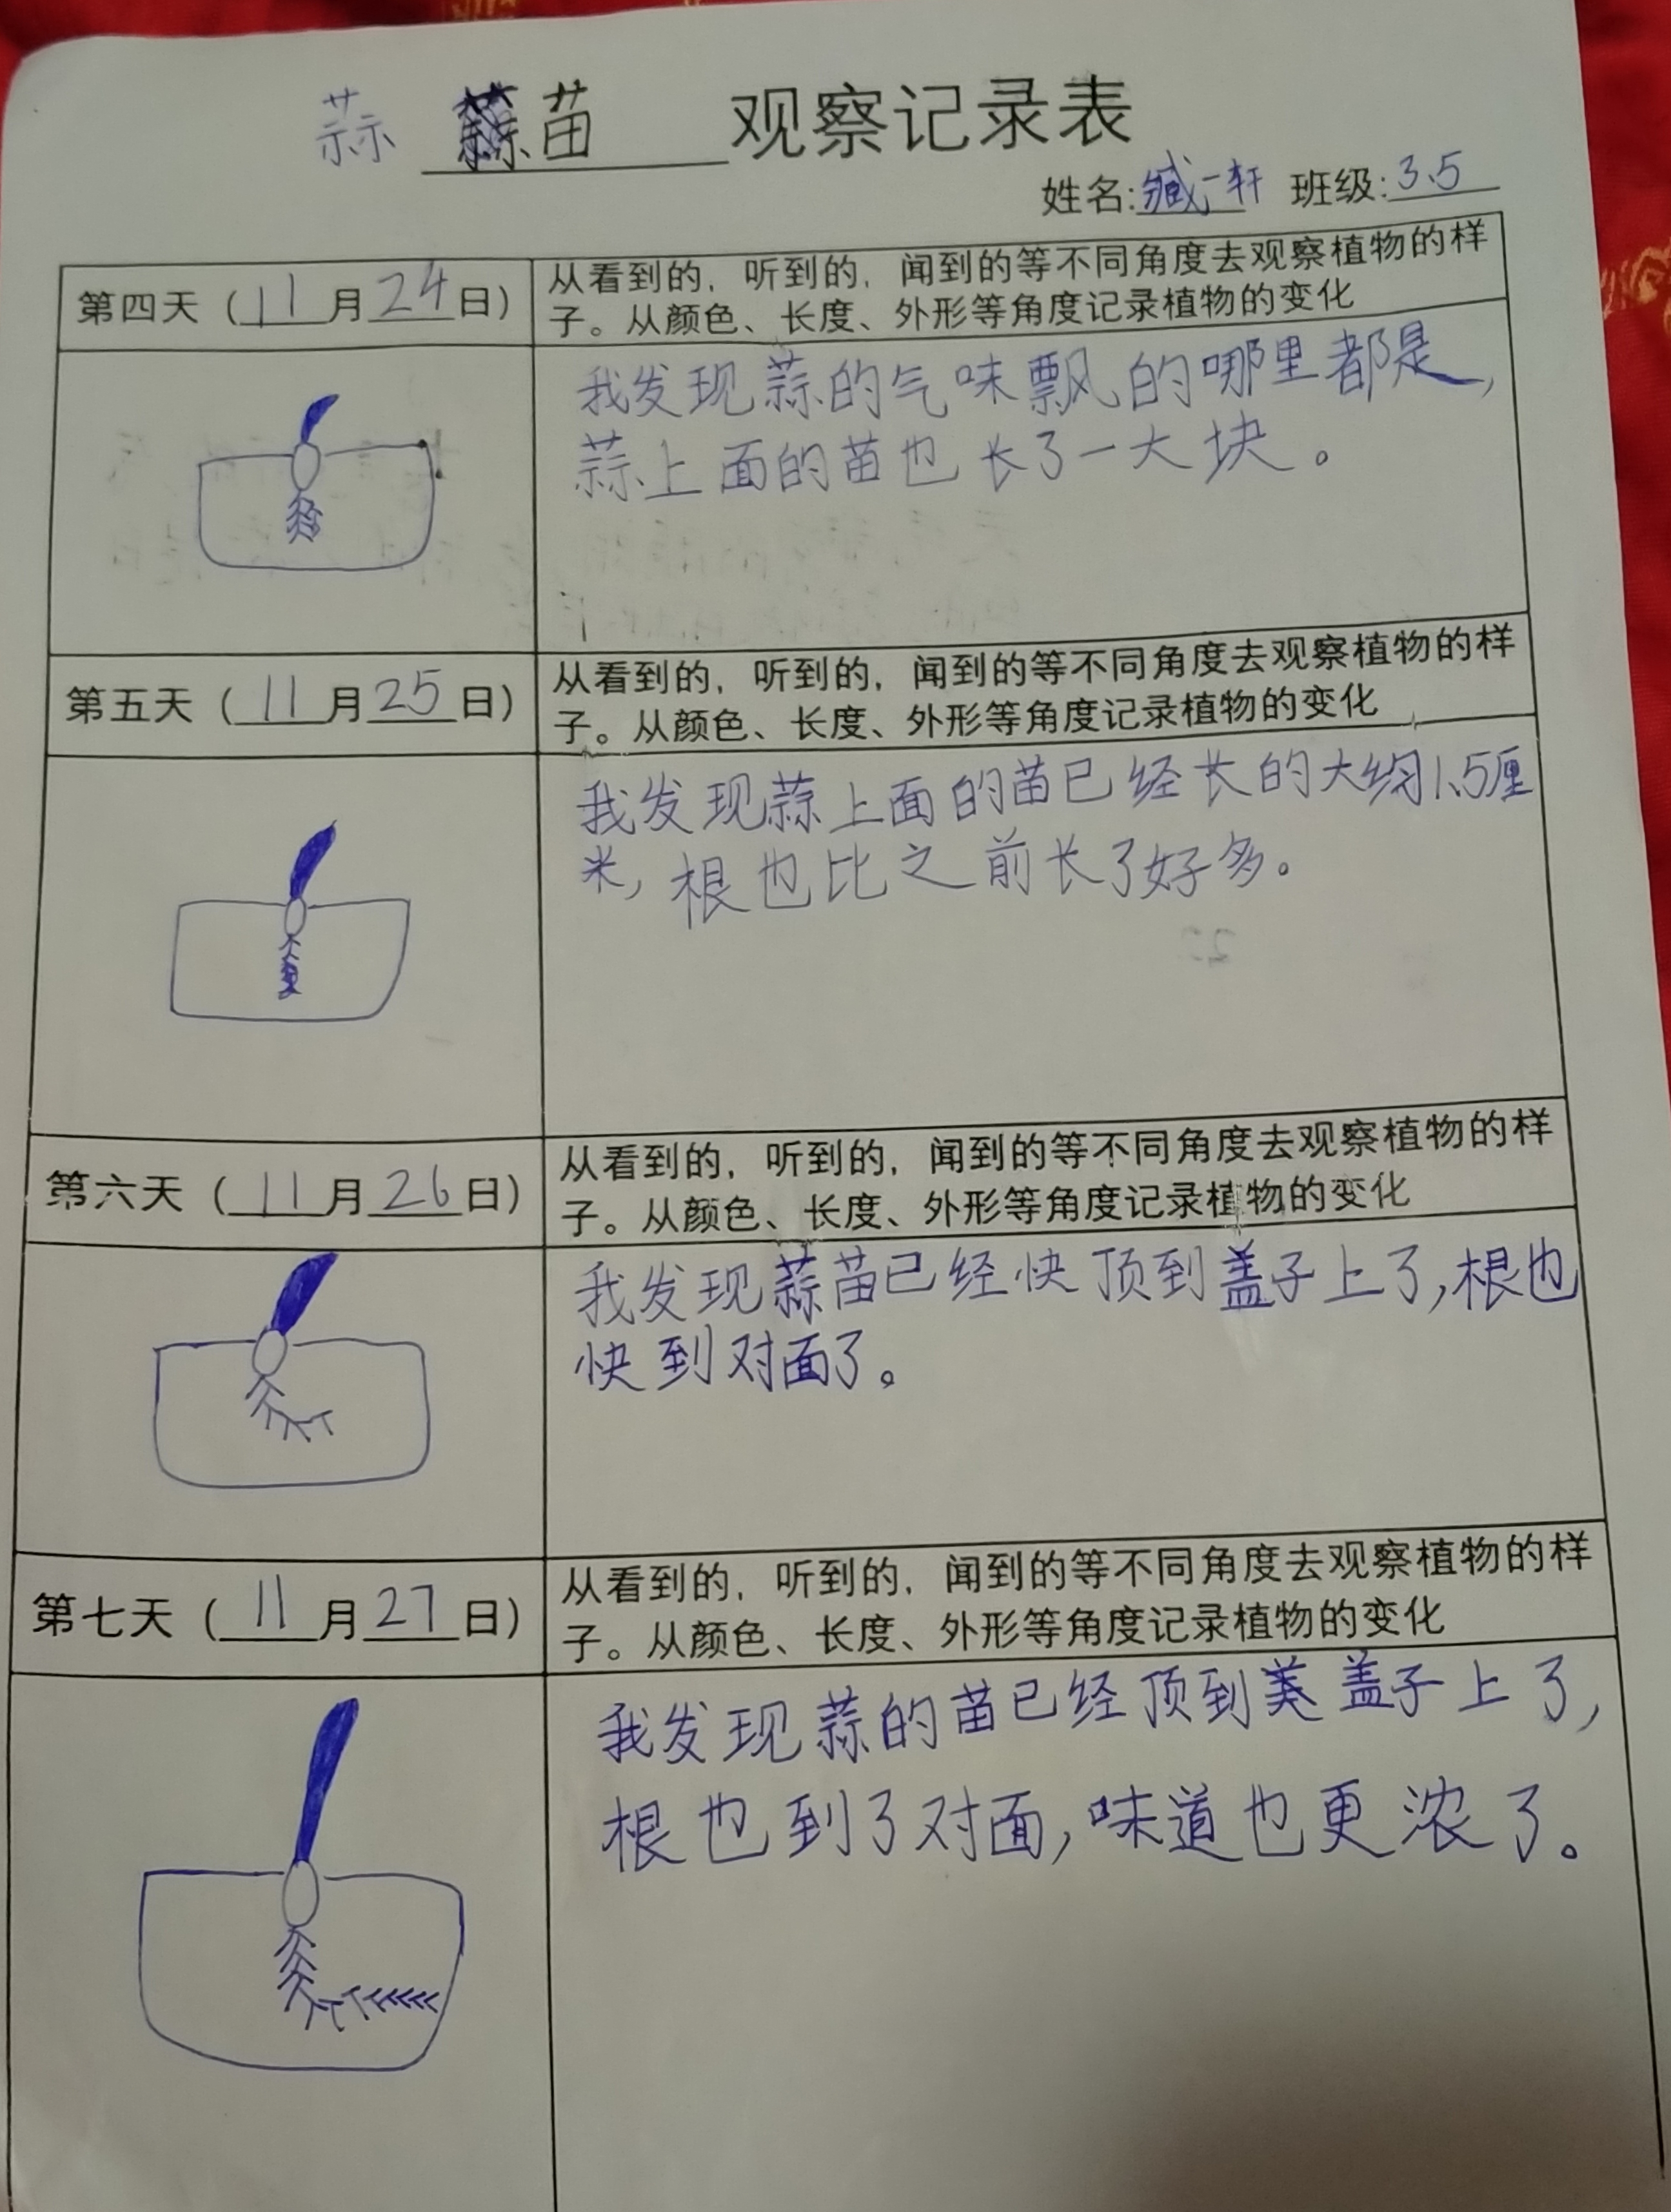 蒜 苗 观察记录表
姓名:臧一轩 班级:3.5
第四天（11月24日）
从看到的，听到的，闻到的等不同角度去观察植物的样
子。从颜色、长度、外形等角度记录植物的变化
我发现蒜的气味飘的哪里都是，
蒜上面的苗也长了一大块。
第五天（11月25日）
从看到的，听到的，闻到的等不同角度去观察植物的样
子。从颜色、长度、外形等角度记录植物的变化
我发现蒜上面的苗已经长的大约1.5厘
米，根也比之前长了好多。
第六天（11月26日）
从看到的，听到的，闻到的等不同角度去观察植物的样
子。从颜色、长度、外形等角度记录植物的变化
我发现蒜苗已经快顶到盖子上了，根也
快到对面了。
第七天（11月27日）
从看到的，听到的，闻到的等不同角度去观察植物的样
子。从颜色、长度、外形等角度记录植物的变化
我发现蒜的苗已经顶到盖子上了，
根也到了对面，味道也更浓了。